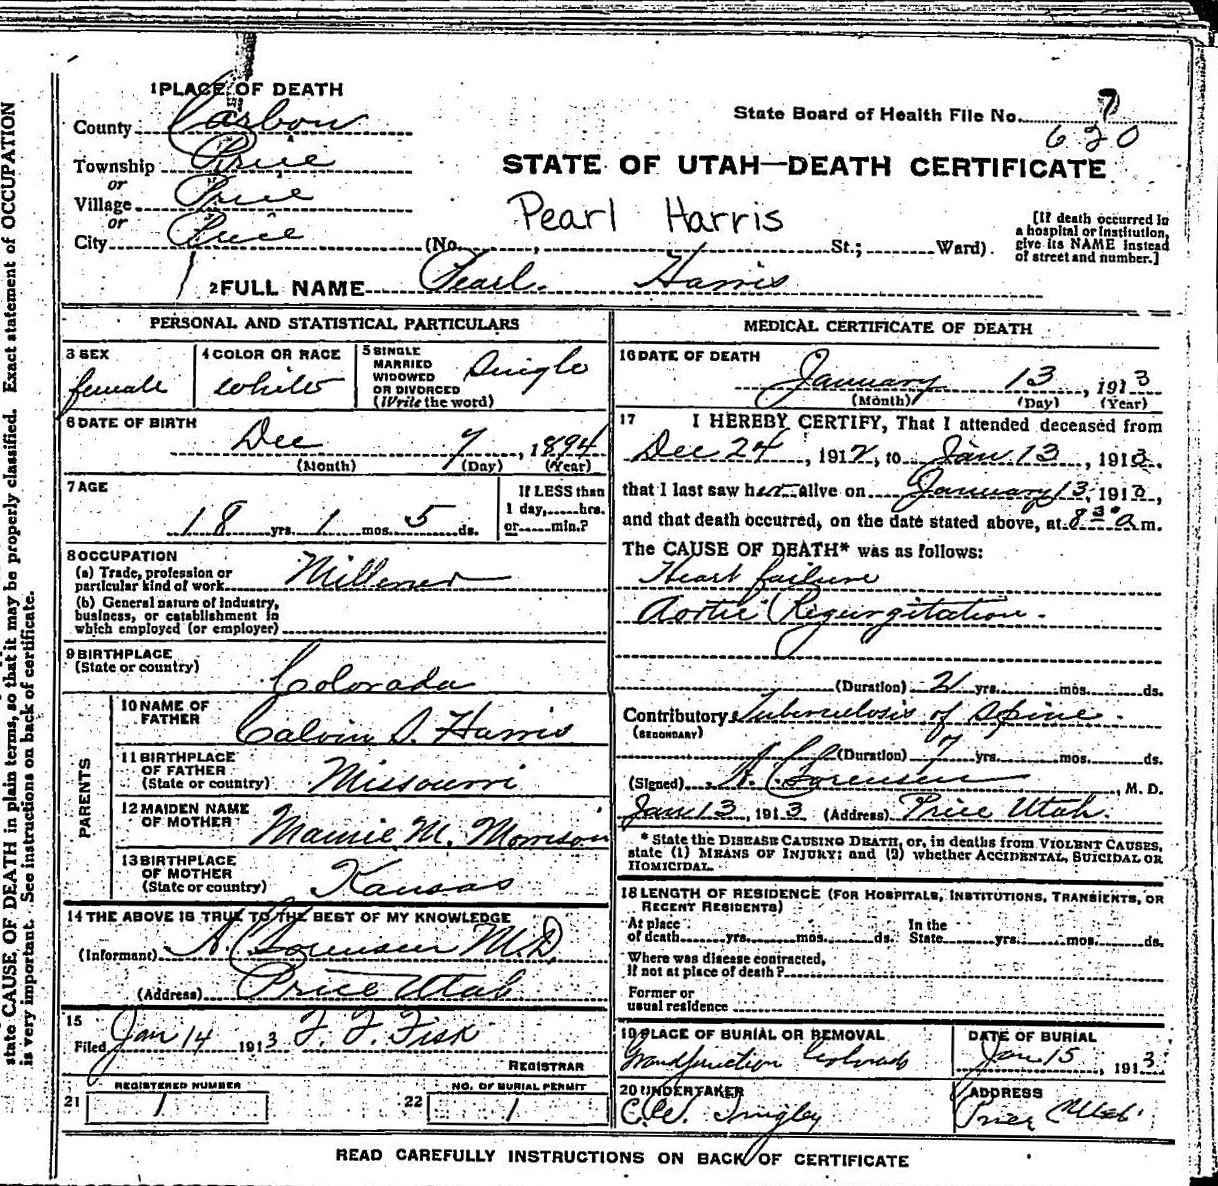 1 PLACE OF DEATH
County Carbon
Township Price
or
Village Price
or
City Price (No. , St.; Ward).
State Board of Health File No. 7
620
STATE OF UTAH—DEATH CERTIFICATE
Pearl Harris
[If death occurred in
a hospital or institution,
give its NAME instead
of street and number.]
2 FULL NAME Pearl Harris
PERSONAL AND STATISTICAL PARTICULARS
3 SEX
female
4 COLOR OR RACE
white
5 SINGLE
MARRIED
WIDOWED
OR DIVORCED
(Write the word)
Single
6 DATE OF BIRTH
Dec 7, 1894
(Month) (Day) (Year)
7 AGE
18 yrs. 1 mos. 5 ds.
If LESS than
1 day, hrs.
or min.?
8 OCCUPATION
(a) Trade, profession or
particular kind of work Millener
(b) General nature of industry,
business, or establishment in
which employed (or employer)
9 BIRTHPLACE
(State or country)
Colorado
PARENTS
10 NAME OF
FATHER
Calvin S. Harris
11 BIRTHPLACE
OF FATHER
(State or country) Missouri
12 MAIDEN NAME
OF MOTHER Mamie M. Morrison
13 BIRTHPLACE
OF MOTHER
(State or country) Kansas
14 THE ABOVE IS TRUE TO THE BEST OF MY KNOWLEDGE
(Informant) A. C. Sorensen M.D.
(Address) Price Utah
15
Filed Jan 14 1913 F. F. Fisk
REGISTRAR
REGISTERED NUMBER
21 1
NO. OF BURIAL PERMIT
22 1
MEDICAL CERTIFICATE OF DEATH
16 DATE OF DEATH
January 13, 1913
(Month) (Day) (Year)
17 I HEREBY CERTIFY, That I attended deceased from
Dec 24, 1912, to Jan 13, 1913.
that I last saw her alive on January 13, 1913,
and that death occurred, on the date stated above, at 8 30 a m.
The CAUSE OF DEATH* was as follows:
Heart failure
Aortic Regurgitation.
(Duration) 2 yrs. mos. ds.
Contributory Tuberculosis of Spine.
(SECONDARY)
(Duration) 7 yrs. mos. ds.
(Signed) A. C. Sorensen, M. D.
Jan 13, 1913 (Address) Price Utah.
* State the DISEASE CAUSING DEATH, or, in deaths from VIOLENT CAUSES,
state (1) MEANS OF INJURY; and (2) whether ACCIDENTAL, SUICIDAL OR
HOMICIDAL.
18 LENGTH OF RESIDENCE (FOR HOSPITALS, INSTITUTIONS, TRANSIENTS, OR
RECENT RESIDENTS)
At place In the
of death yrs. mos. ds. State yrs. mos. ds.
Where was disease contracted,
if not at place of death?
Former or
usual residence
19 PLACE OF BURIAL OR REMOVAL
Grandjunction Colorado
DATE OF BURIAL
Jan 15, 1913
20 UNDERTAKER
ADDRESS
Price Utah
READ CAREFULLY INSTRUCTIONS ON BACK OF CERTIFICATE
state CAUSE OF DEATH in plain terms, so that it may be properly classified. Exact statement of OCCUPATION
is very important. See instructions on back of certificate.